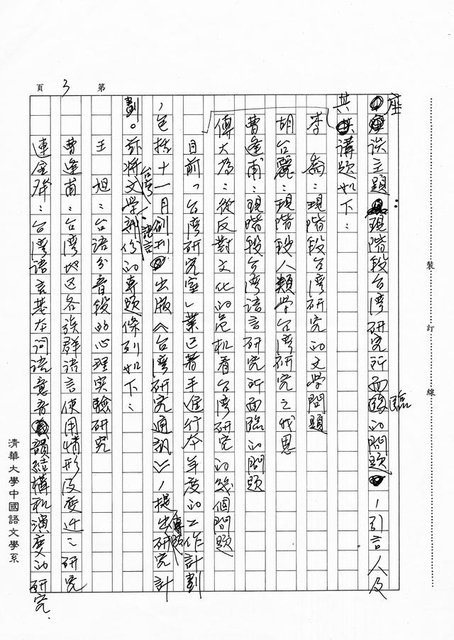 座談主題：現階段台灣研究所面臨的問題，引言人及
其講題如下：
李喬：現階段台灣研究的文學問題
胡台麗：現階段人類學台灣研究之我思
曹逢甫：現階段台灣語言研究所面臨的問題
傅大為：從反對文化的危機看台灣研究的幾個問題
目前，「台灣研究室」業已著手進行本年度的工作計劃
，包括十一月創刊出版《台灣研究通訊》，提出專題研究計
劃。茲將文學、台灣語言部份的專題條列如下：
王旭：台語分音段的心理實驗研究
曹逢甫：台灣地區各族群語言使用情形及變遷之研究
連金發：台灣語言基本詞語意音韻結構和演變的研究
第3頁
裝訂線
清華大學中國語文學系